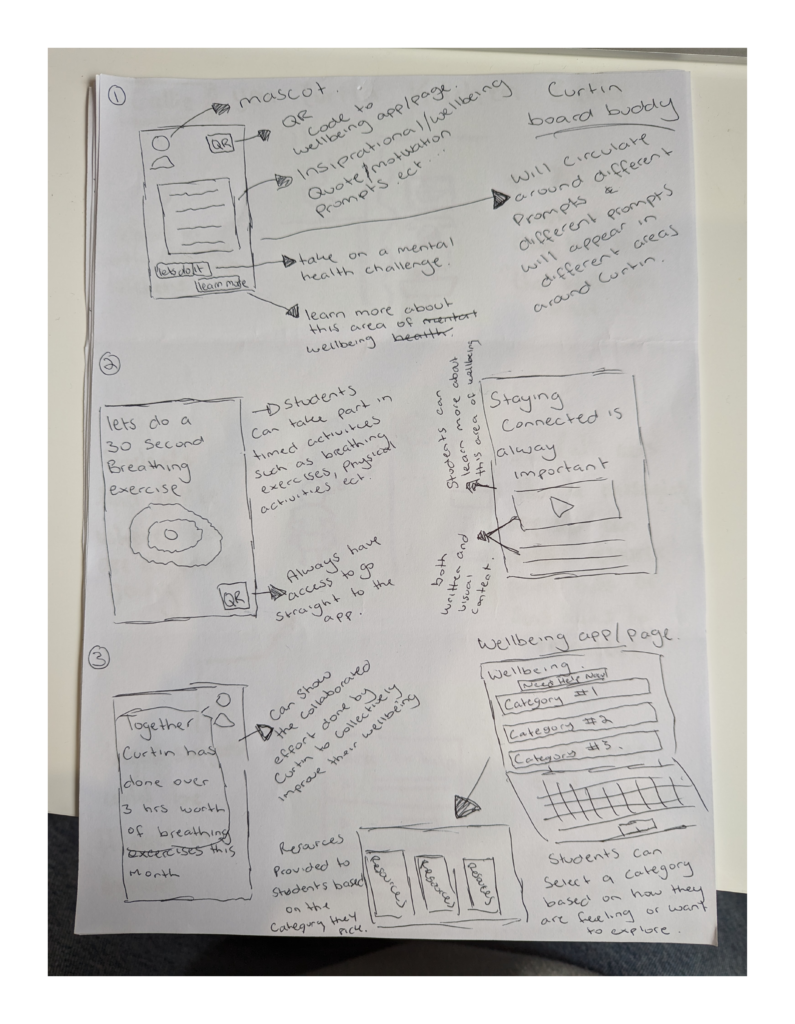 1
mascot.
QR
QR
Code to
wellbeing app/page.
Insiprational/wellbeing
Quote/motivation
prompts ect...
Curtin
board buddy
Will circulate
around different
Prompts &
different prompts
will appear in
different areas
around Curtin.
lets do it
learn more
take on a mental
health challenge.
learn more about
this area of mental
wellbeing health.
2
lets do a
30 Second
Breathing
exercise
QR
Students
Can take part in
timed activities
such as breathing
exercises, physical
activities ect.
Always have
access to go
straight to the
app.
Students can
learn more about
this area of wellbeing
both
written and
visual
content.
Staying
Connected is
alway
important
3
Together
Curtin has
done over
3 hrs worth
of breathing
excercises this
Month
Can show
the collaborated
effort done by
Curtin to collectively
improve their wellbeing
Wellbeing app/page.
Wellbeing.
Need Help Now?
Category #1
Category #2
Category #3.
Resources
Provided to
Students based
on the
Category they
pick.
Resources
Resources
Students can
Select a category
based on how they
are feeling or want
to explore.